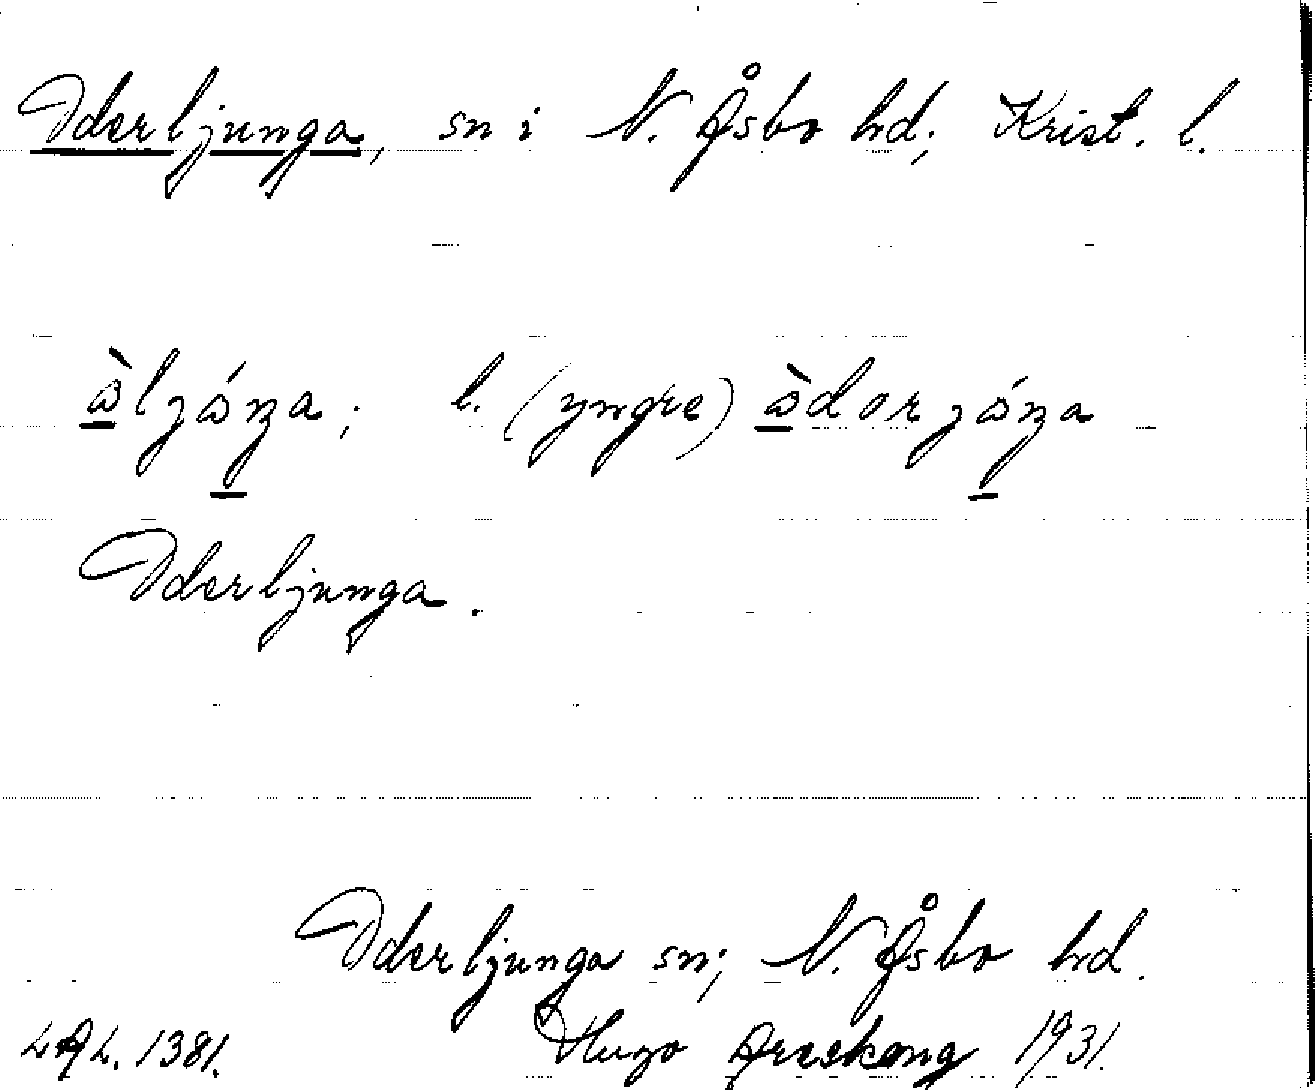 Oderljunga, sn i N. Åsbo hd; Krist. l.
l. (yngre)
Oderljunga.
Oderljunga sn; N. Åsbo hd.
LAL. 1381. Hugo Areskoug 1931.